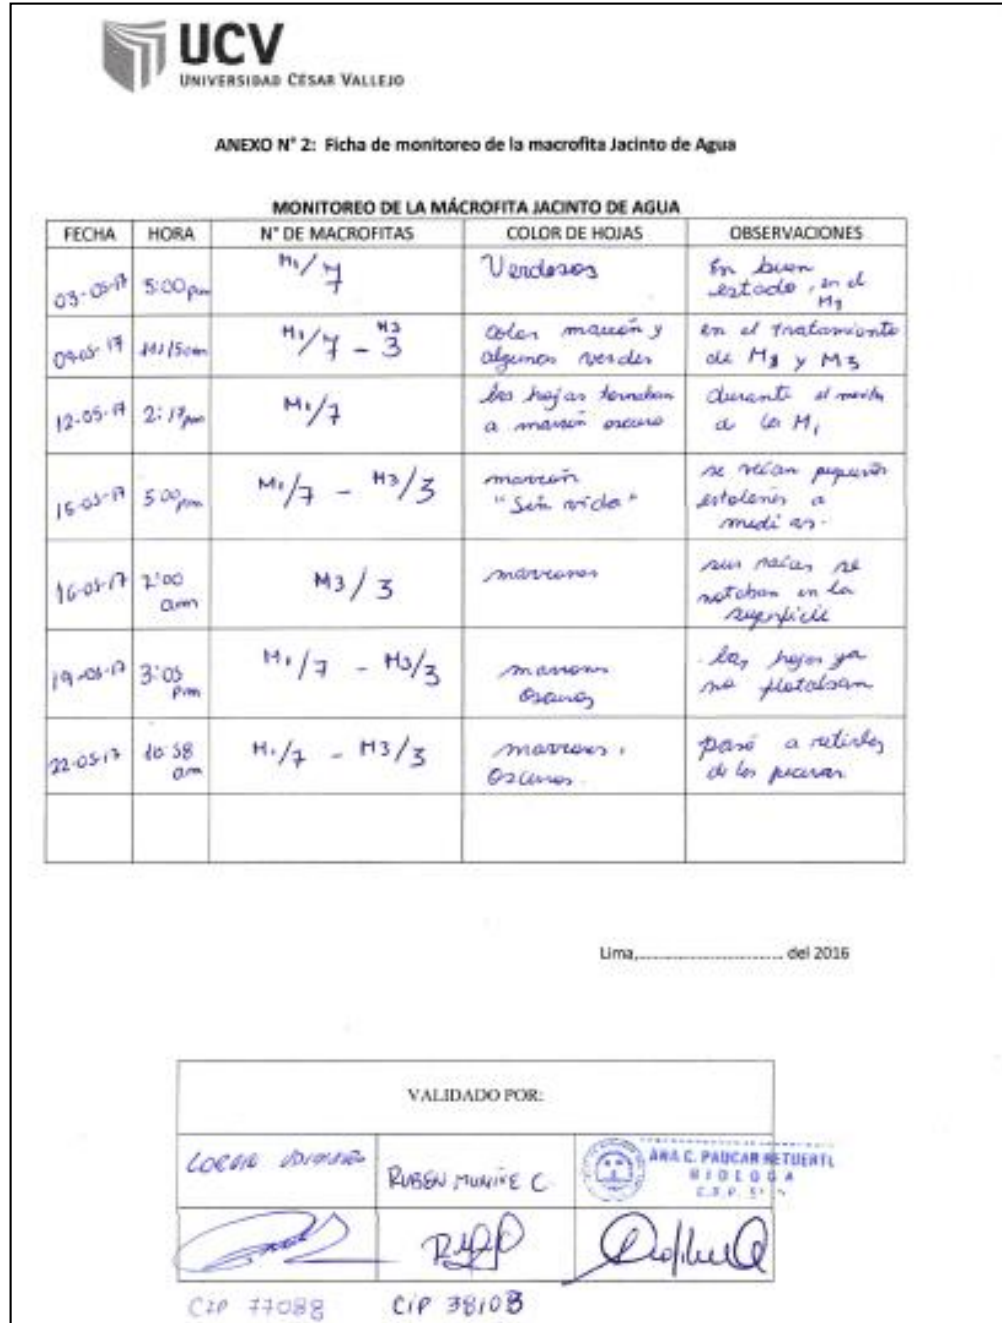 UCV
UNIVERSIDAD CÉSAR VALLEJO
ANEXO N° 2: Ficha de monitoreo de la macrofita Jacinto de Agua
MONITOREO DE LA MÁCROFITA JACINTO DE AGUA
FECHA HORA N° DE MACROFITAS COLOR DE HOJAS OBSERVACIONES
03-05-17 5:00 pm M1/7 Verdosos En buen
estado, en el
09-05-17 M1/7 - M3 3 color marrón y
algunos verdes
en el tratamiento
de y M3
12-05-17 2:17 pm M1/7 las hojas tornaban
a marrón oscuro
durante el
a la M1
15-05-17 5:00 pm M1/7 - M3/3 marrón
"Sin vida"
se veían pequeños
estolones a
medias.
16-05-17 2:00 am M3/3 marrones
sus raíces se
notaban en la
superficie
19-05-17 3:05 pm M1/7 - M3/3 marrones
oscuros
las hojas ya
no flotaban
22-05-17 10:58 am M1/7 - M3/3 marrones
oscuros.
pasó a retirarlos
de las peceras
Lima,.................................. del 2016
VALIDADO POR:
RUBEN MUNIVE C.
ANA C. PAUCAR RETUERTO
BIOLOGA
CIP 77088 CIP 38103